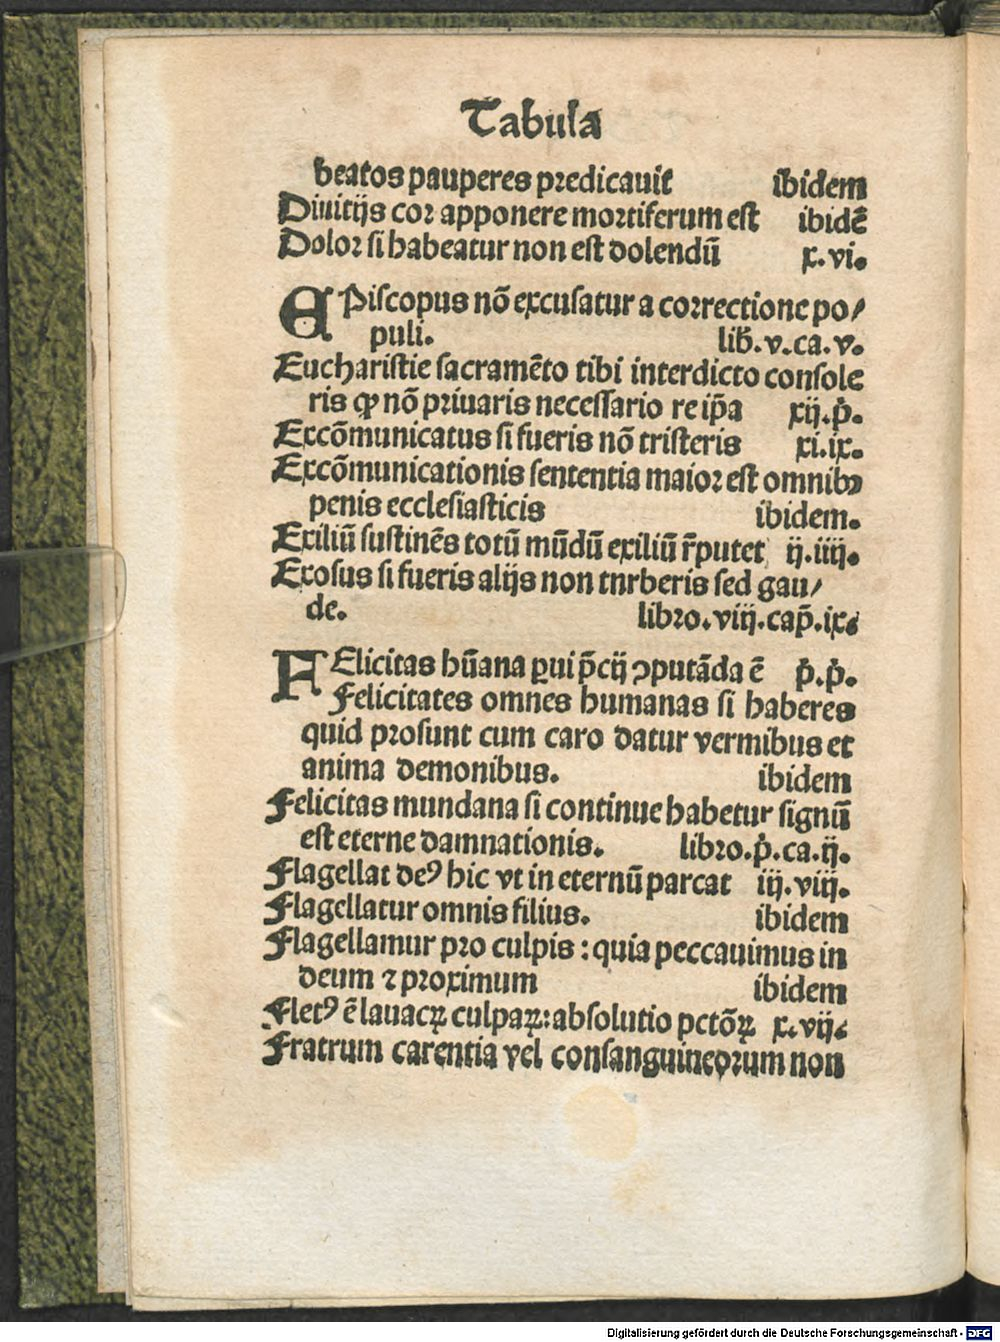 Tabula
beatos pauperes predicauit ibidem
Diuitijs cor apponere mortiferum est ibidē
Dolor si habeatur non est dolendū x.vi.
EPiscopus nō excusatur a correctione po/
puli. lib̄.v.ca.v.
Eucharistie sacramēto tibi interdicto console
ris ꝙ nō priuaris necessario re ip̄a xij.p̄.
Excōmunicatus si fueris nō tristeris xi.ix.
Excōmunicationis sententia maior est omnibꝫ
penis ecclesiasticis ibidem.
Exiliū sustinēs totū mūdū exiliū r̄putet ij.iiij.
Exosus si fueris alijs non tnrberis sed gau/
de. libro.viij.cap̄.ix.
FElicitas hūana ꝑui p̄cij ꝯputāda ē p̄.p̄.
Felicitates omnes humanas si haberes
quid prosunt cum caro datur vermibus et
anima demonibus. ibidem
Felicitas mundana si continue habetur signū
est eterne damnationis. libro.p̄.ca.ij.
Flagellat deꝰ hic vt in eternū parcat iij.viij.
Flagellatur omnis filius. ibidem
Flagellamur pro culpis : quia peccauimus in
deum ⁊ proximum ibidem
Fletꝰ ē lauacꝝ culpaꝝ: absolutio pctōꝝ x.vij.
Fratrum carentia vel consanguineorum non
Digitalisierung gefördert durch die Deutsche Forschungsgemeinschaft - DFG